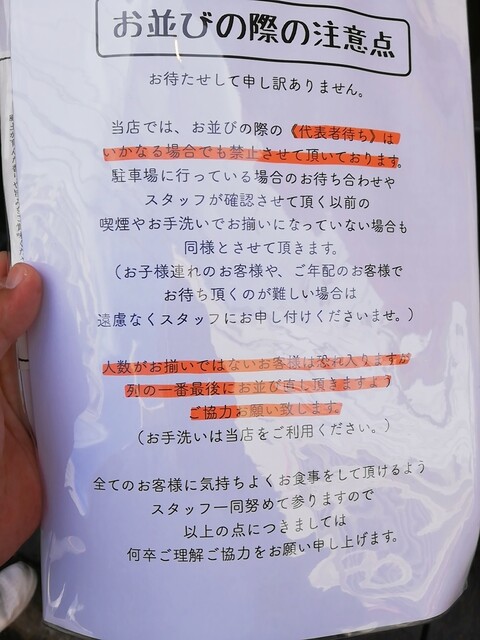 お並びの際の注意点
お待たせして申し訳ありません。
当店では、お並びの際の《代表者待ち》は
いかなる場合でも禁止させて頂いております。
駐車場に行っている場合のお待ち合わせや
スタッフが確認させて頂く以前の
喫煙やお手洗いでお揃いになっていない場合も
同様とさせて頂きます。
（お子様連れのお客様や、ご年配のお客様で
お待ち頂くのが難しい場合は
遠慮なくスタッフにお申し付けくださいませ。）
人数がお揃いではないお客様は恐れ入りますが
列の一番最後にお並び直し頂きますよう
ご協力お願い致します。
（お手洗いは当店をご利用ください。）
全てのお客様に気持ちよくお食事をして頂けるよう
スタッフ一同努めて参りますので
以上の点につきましては
何卒ご理解ご協力をお願い申し上げます。